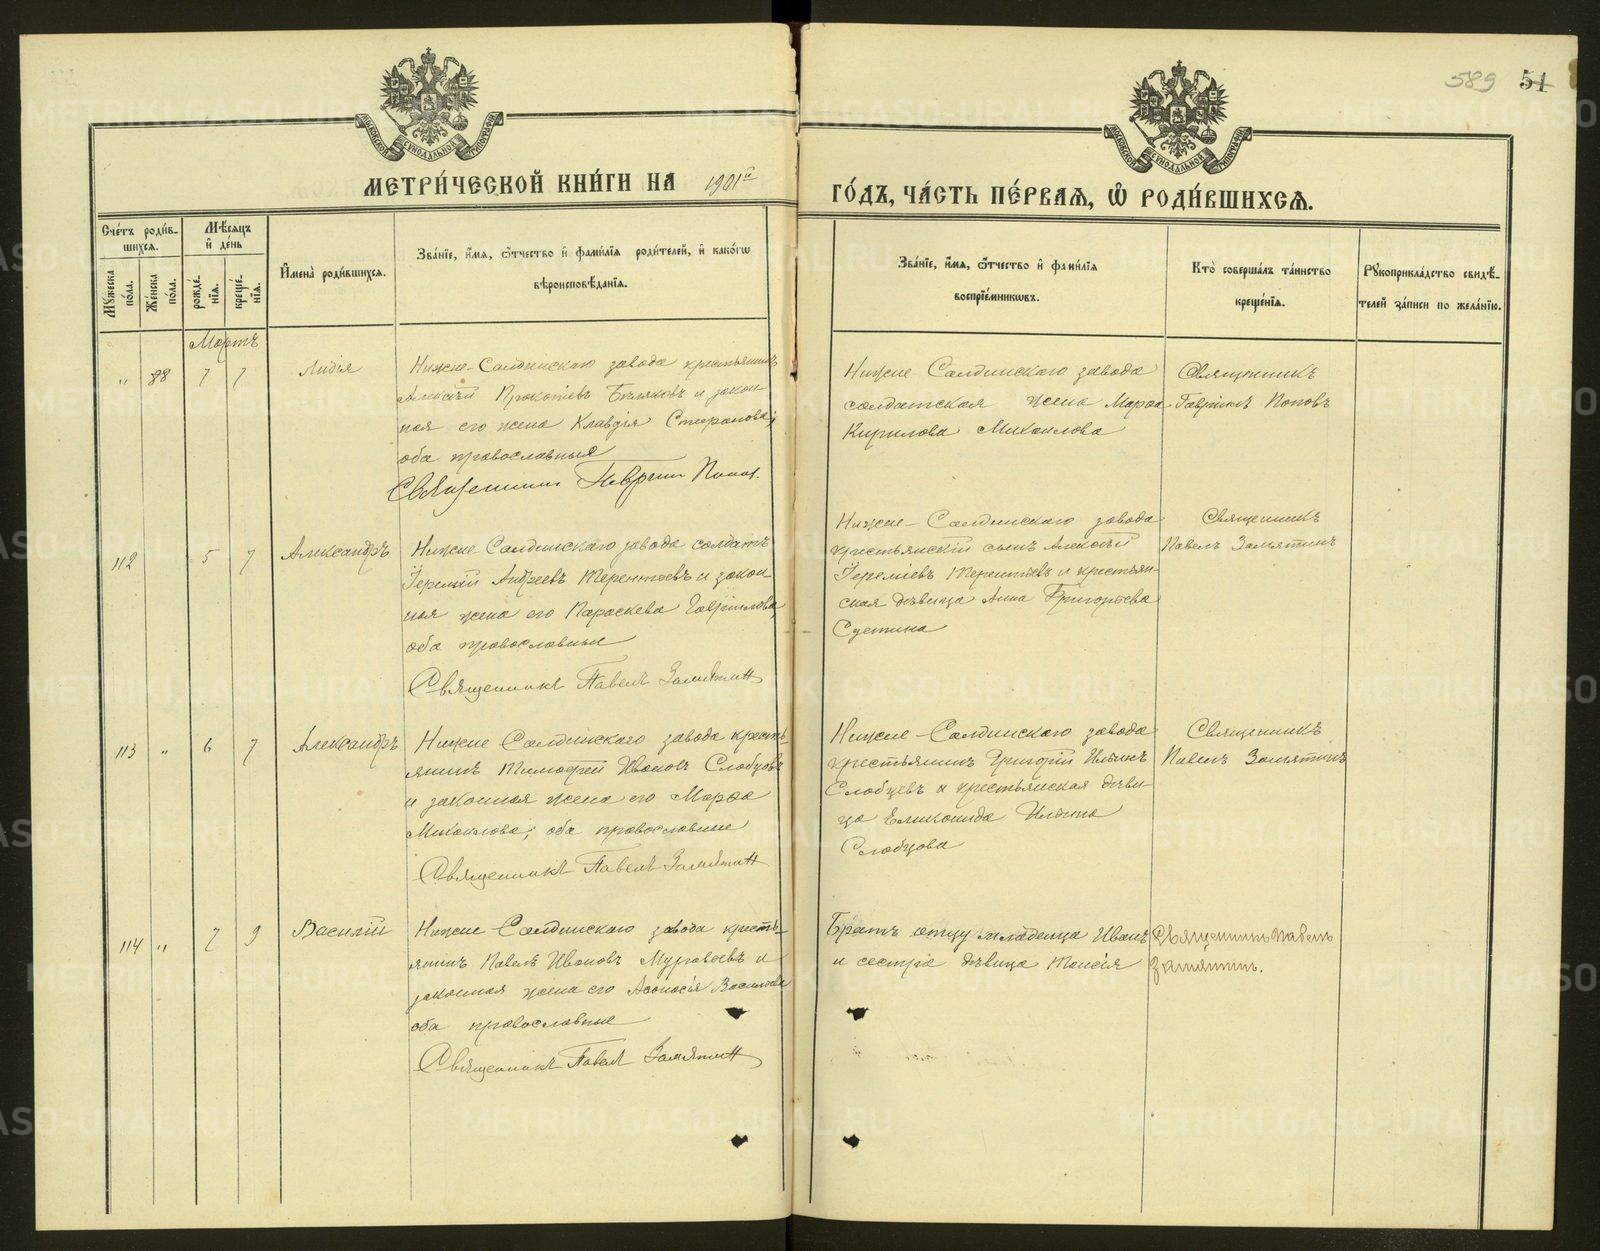 589 51
МОСКОВСКОЙ СѴНОДАЛЬНОЙ ТИПОГРАФІИ
МОСКОВСКОЙ СѴНОДАЛЬНОЙ ТИПОГРАФІИ
МЕТРИ́ЧЕСКОЙ КНИ́ГИ НА 1901й
ГО́ДЪ, ЧА́СТЬ ПЕ́РВАѦ, Ѿ РОДИ́ВШИХСѦ.
Сче́тъ роди́в-
шихся.
Мѣ́сяцъ
и́ де́нь
Мꙋжеска по́ла.
Же́нска по́ла.
рожде́-
нїя.
креще́-
нїя.
И҆мена̀ роди́вшихся.
Зва́нїе, и҆́мя, ѻ҆́тчество и҆ фами́лїя роди́телей, и҆ како́гѡ
вѣроисповѣ́данїя.
Зва́нїе, и҆́мя, ѻ҆́тчество и҆ фами́лїя
воспрїе́мникѡвъ.
Кто̀ соверша́лъ та́инство
креще́нїя.
Рꙋкоприкла́дство свидѣ́-
телей за́писи по жела́нїю.
Мартъ
" 88 7 7 Лидія
Ниже-Салдинскаго завода крестьянинъ
Алексѣй Прокопіевъ Бѣляковъ и закон-
ная его жена Клавдія Стефанова,
оба православныя
Священникъ Гавріилъ Попов.
Ниже Салдинскаго завода
солдатская жена Марѳа
Кирилова Михаилова
Священникъ
Гавріилъ Поповъ
112 5 7 Александръ
Ниже Салдинскаго завода солдатъ
Іеремій Андреевъ Терентьевъ и закон-
ная жена его Параскева Гавріилова,
оба православные
Священникъ Павелъ Замятин
Ниже-Салдинскаго завода
крестьянскій сынъ Алексѣй
Іереміевъ Терентьевъ и крестьян-
ская дѣвица Анна Григорьева
Суетина
Священникъ
Павелъ Замятинъ
113 " 6 7 Александръ
Ниже Салдинскаго завода кресть-
янинъ Тимофей Ивановъ Слобцовъ
и законная жена его Марѳа
Михаилова; оба православные
Священникъ Павелъ Замятин
Ниже-Салдинскаго завода
крестьянинъ Григорій Ильинъ
Слобцевъ и крестьянская дѣви-
ца Еликонида Ильина
Слобцова
Священникъ
Павелъ Замятинъ
114 " 7 9 Василій
Ниже Салдинскаго завода кресть-
янинъ Павелъ Ивановъ и
законная жена его Аѳанасія Васильева
оба православные
Священникъ Павелъ Замятин
Братъ отцу младенца Иванъ
и сестра дѣвица Таисія
Священникъ Павелъ
Замятинъ.
METRIKI.GASO-URAL.RU